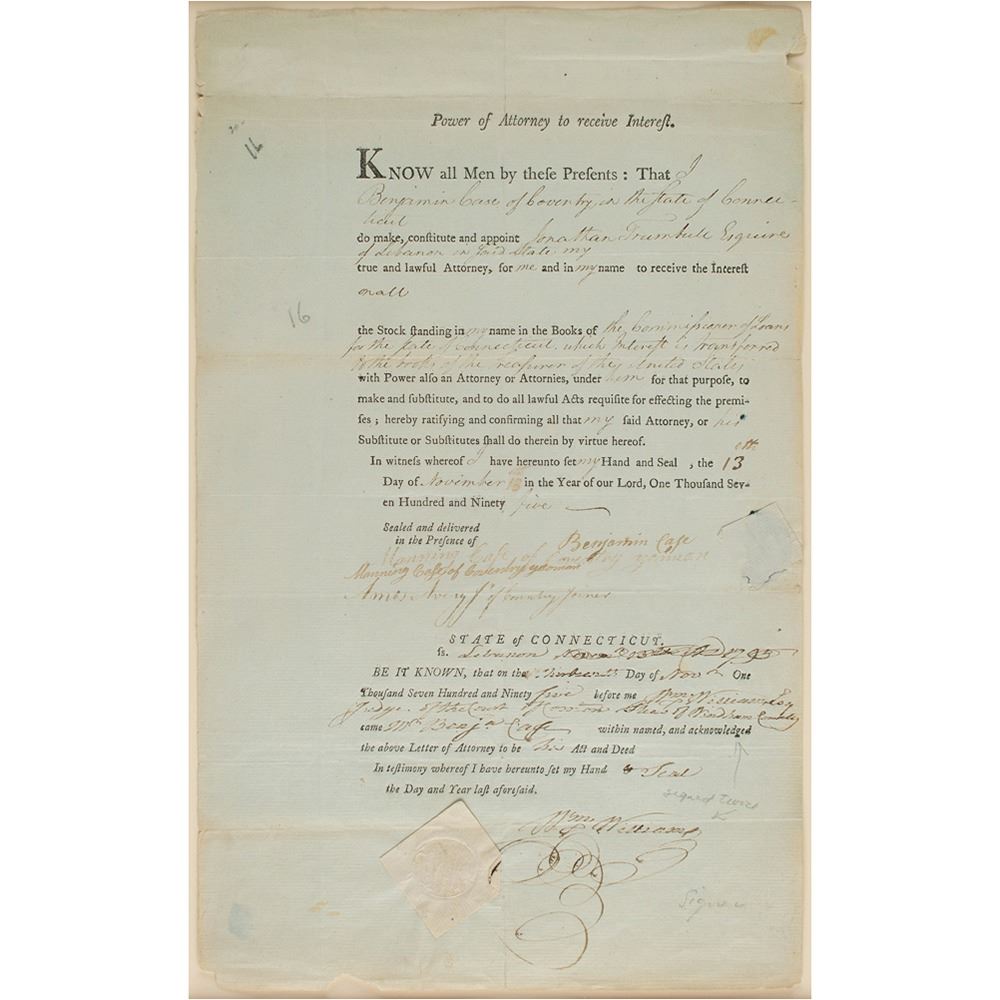 Power of Attorney to receive Intereſt.
16
KNOW all Men by theſe Preſents : That I
Benjamin Case of Coventry in the State of Connec-
ticut
do make, conſtitute and appoint Jonathan Trumbull Esquire
of Lebanon in said State my
true and lawful Attorney, for me and in my name to receive the Intereſt
on all
16
the Stock ſtanding in my name in the Books of the Commissioner of Loans
for the State of Connecticut which Interest is transferred
to the books of the Treasurer of the United States
with Power alſo an Attorney or Attornies, under him for that purpoſe, to
make and ſubſtitute, and to do all lawful Acts requiſite for effecting the premi-
ſes ; hereby ratifying and confirming all that my ſaid Attorney, or his
Subſtitute or Subſtitutes ſhall do therein by virtue hereof.
In witneſs whereof I have hereunto ſet my Hand and Seal , the 13th
Day of November 13 in the Year of our Lord, One Thouſand Sev-
en Hundred and Ninety five
Sealed and delivered
in the Preſence of
Benjamin Case
Manning Case of Coventry yeoman
Manning Case of Coventry yeoman
Amos Avery Jr of Coventry Joiner
STATE of CONNECTICUT,
ſs. Lebanon Novr 13th 1795
BE IT KNOWN, that on the thirteenth Day of Novr One
Thouſand Seven Hundred and Ninety five before me Wm Williams Esq
Judge of the Court of Common Pleas of Windham County
came Mr Benja Case within named, and acknowledged
the above Letter of Attorney to be his Act and Deed
In teſtimony whereof I have hereunto ſet my Hand & Seal
the Day and Year laſt aforeſaid.
signed twice
Wm Williams
Signer